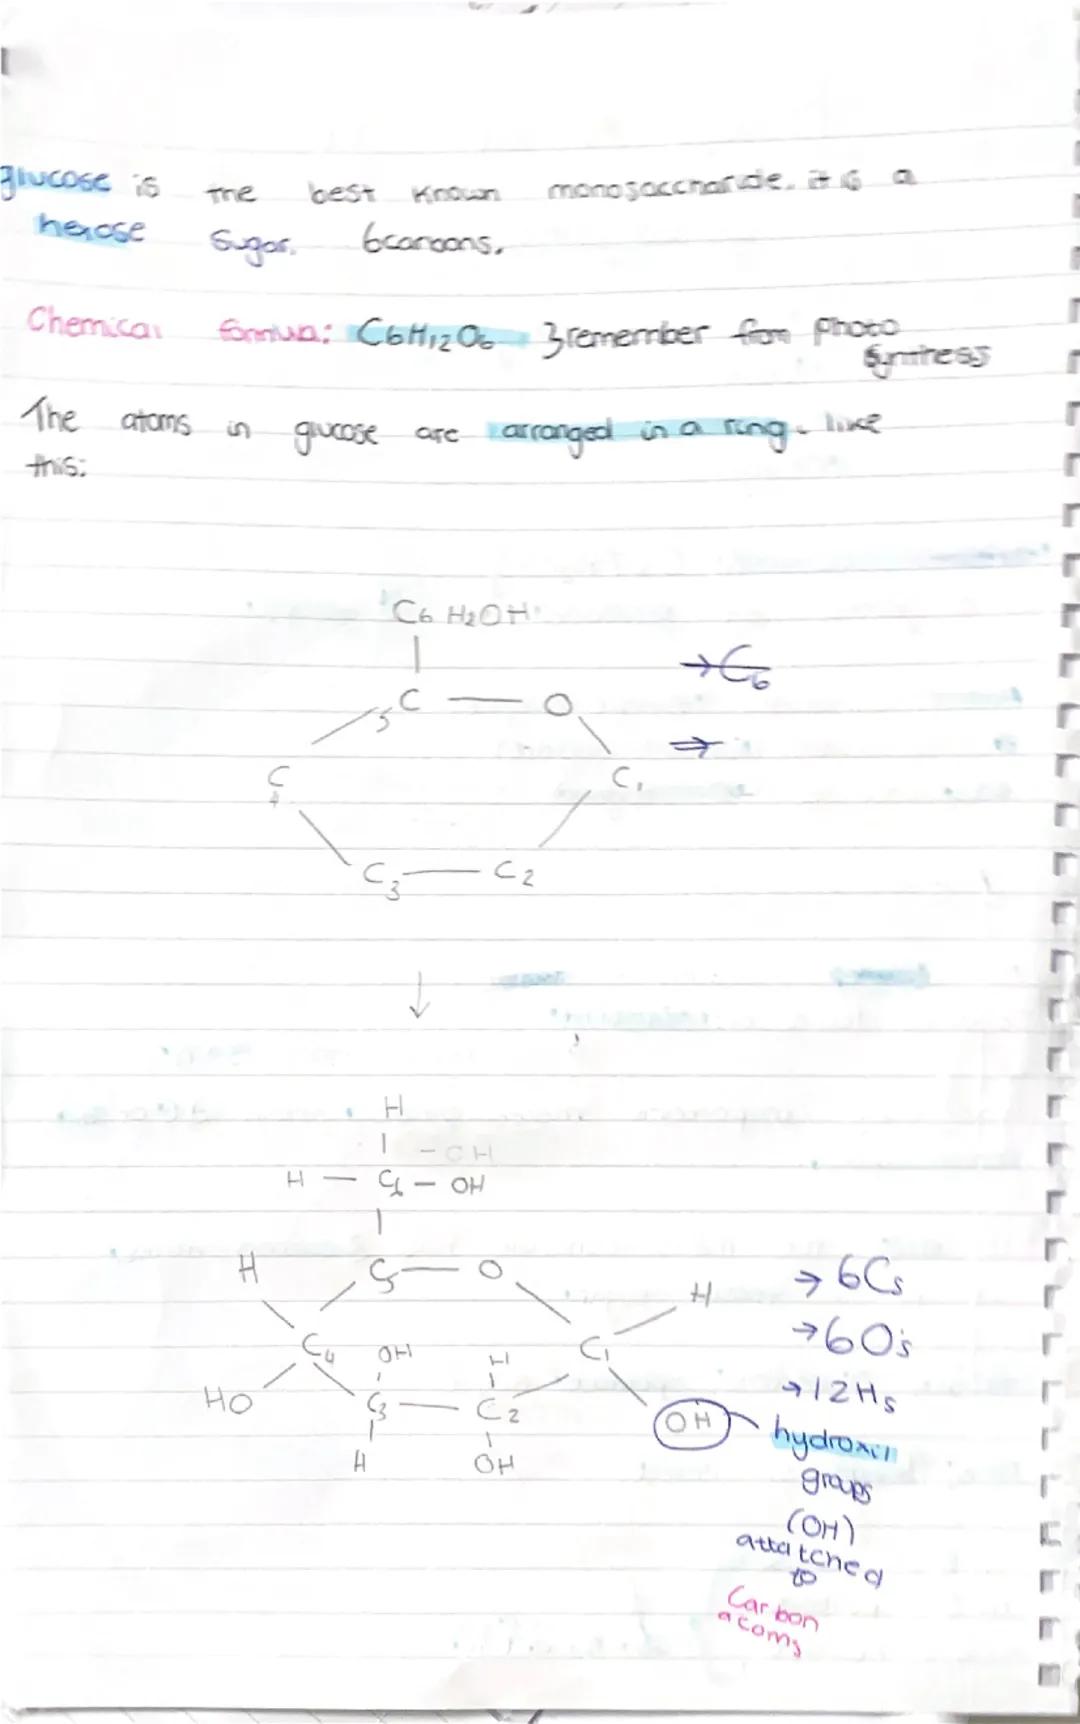 glucose is the best known monosaccharide. it is a
hexose sugar. 6carbons.
Chemical formula: C6H12O6 } remember from photo
synthesis
The atoms in glucose are arranged in a ring. like
this:
C6 H2OH
→C6
C5 — O
→
C4 C1
C3 — C2
↓
H
- OH
H — C6 — OH
H C5 — O H → 6Cs
→ 6O's
C4 OH H C1
→ 12Hs
HO C3 — C2 OH hydroxil
H OH groups
(OH)
attatched
to
Carbon
atoms